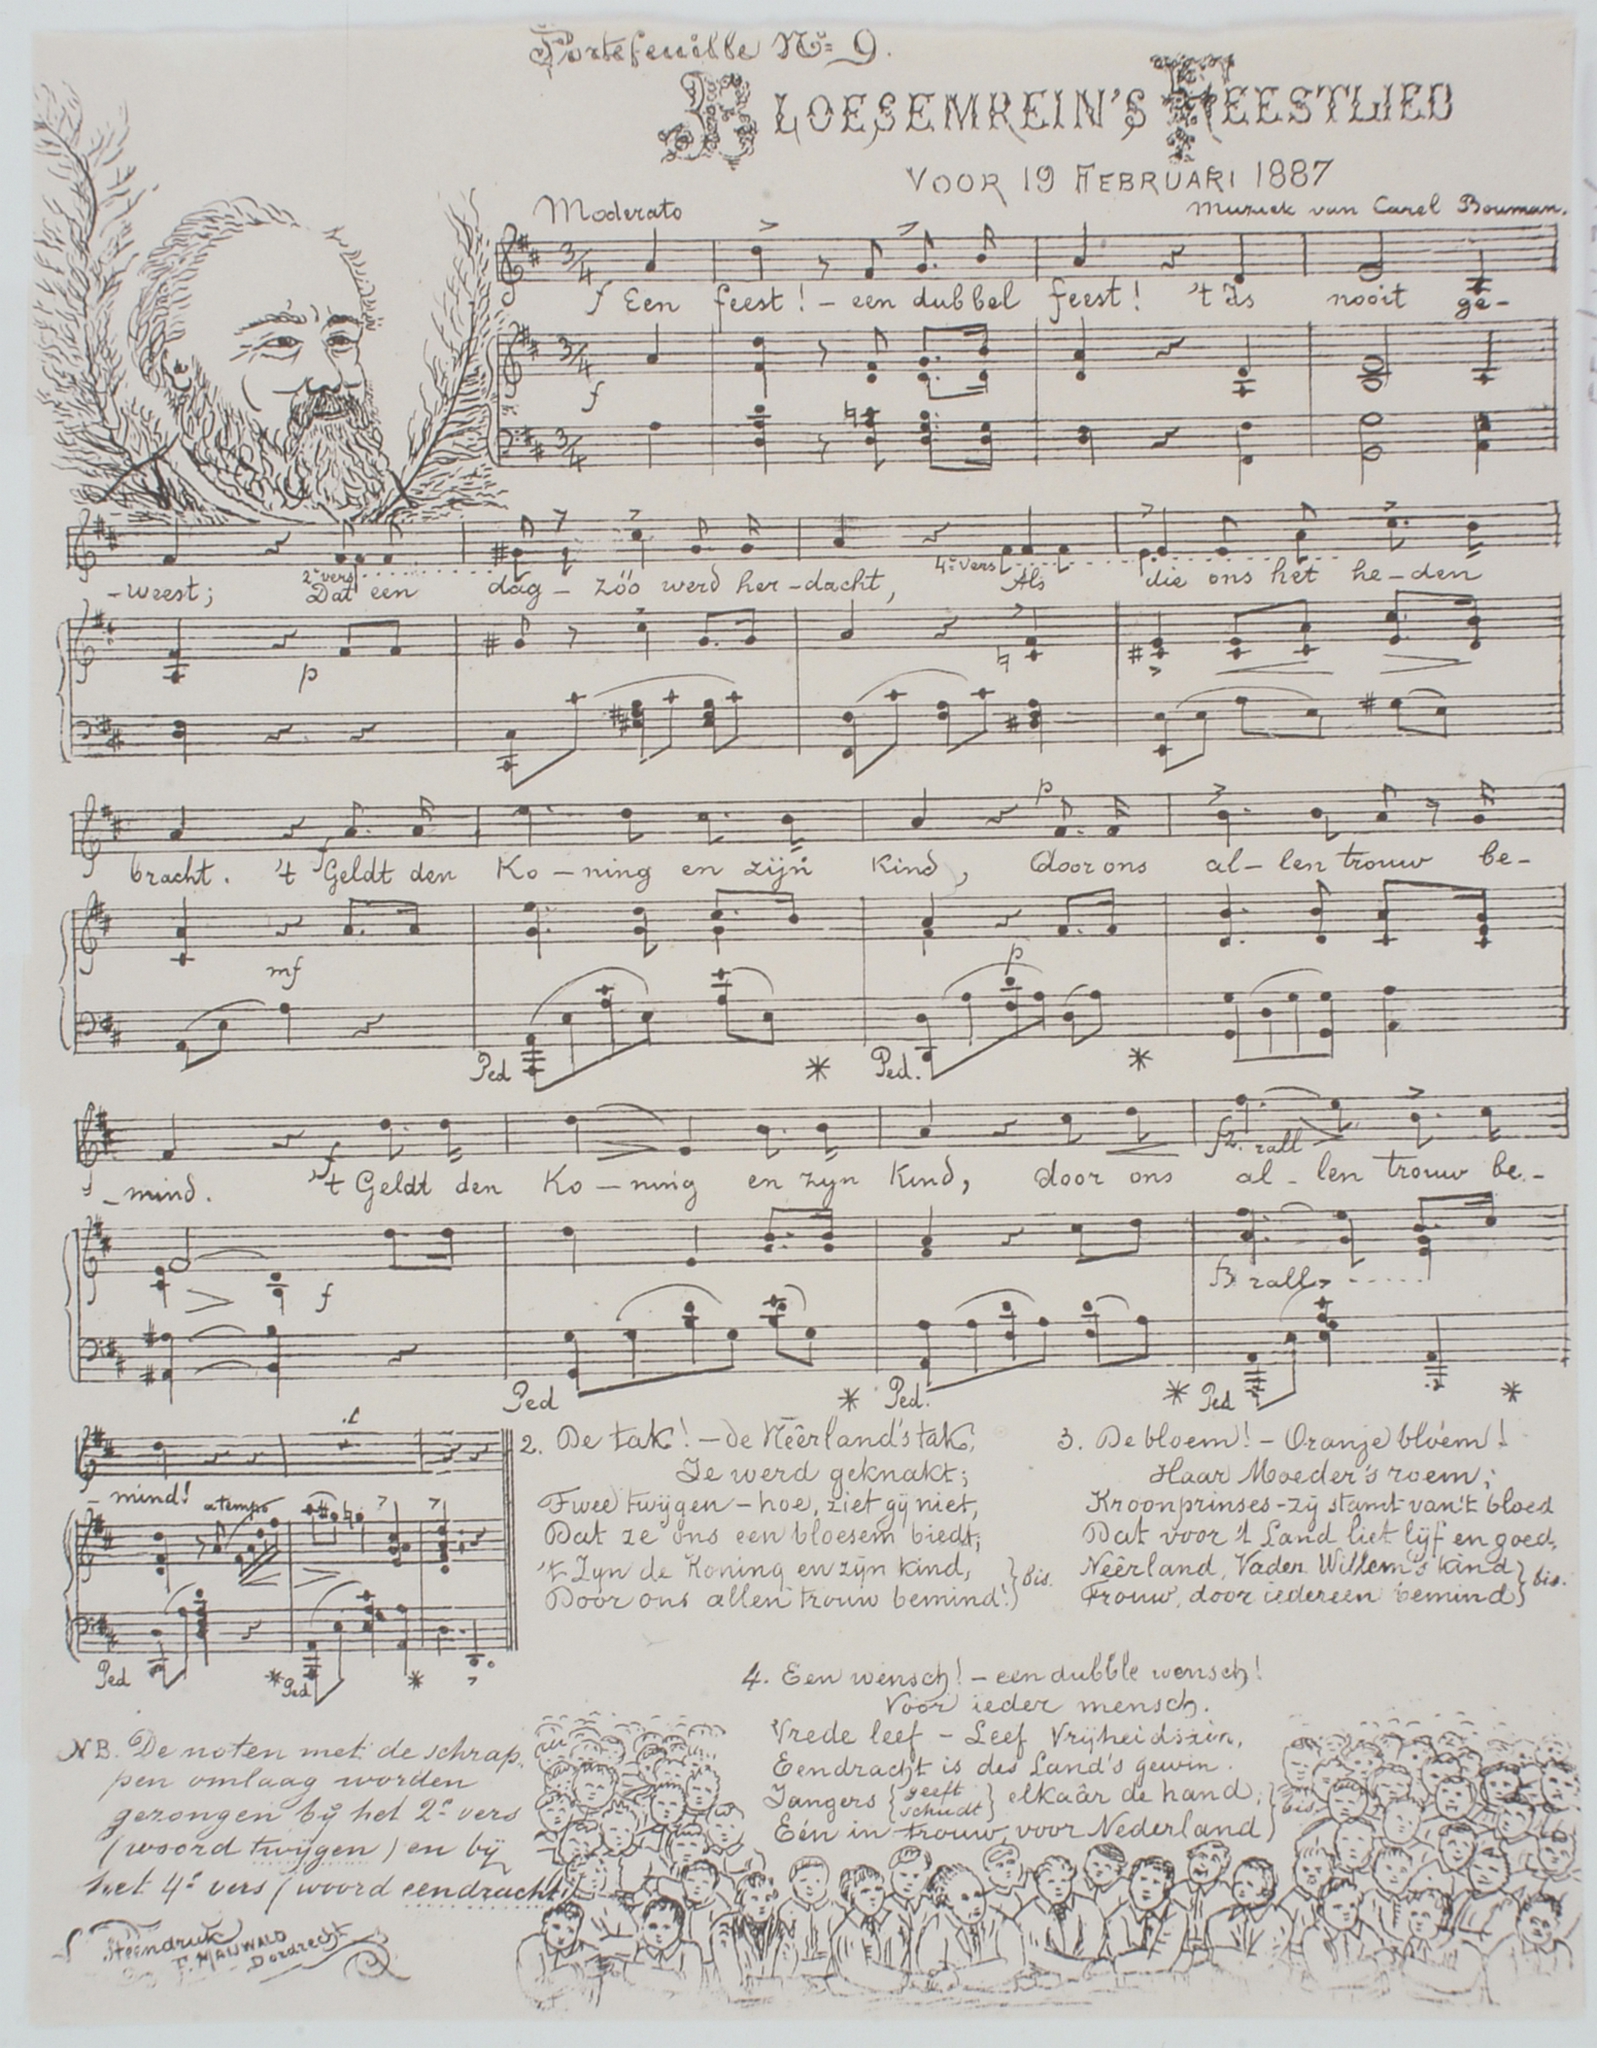 Portefeuille No 9.
BLOESEMREIN'S FEESTLIED
VOOR 19 FEBRUARI 1887
Moderato
Muziek van Carel Bouman.
f Een feest! - een dubbel feest! 't is nooit ge-
f
2e vers
4e vers
-weest; Dat een dag - zóó werd her-dacht, Als die ons het he-den
p
p
bracht. 't Geldt den Ko-ning en zijn kind, door ons al-len trouw be-
f
mf
p
Ped * Ped. *
fz. rall
-mind. 't Geldt den Ko-ning en zyn kind, door ons al-len trouw be-
f
f
rall
Ped * Ped. * Ped *
-mind!
a tempo
Ped * Ped *
2. De tak! - de Neêrland's tak,
Ze werd geknakt;
Twee twijgen - hoe, ziet gij niet,
Dat ze ons een bloesem biedt;
't Zyn de Koning en zijn kind,
Door ons allen trouw bemind! } bis.
3. De bloem! - Oranje bloem!
Haar Moeder's roem;
Kroonprinses - zij stamt van 't bloed
Dat voor 't Land liet lijf en goed,
Neêrland, Vader Willem's kind
Trouw, door iedereen bemind } bis.
4. Een wensch! - een dubble wensch!
Voor ieder mensch.
Vrede leef - Leef Vrijheidszin,
Eendracht is des Land's gewin.
Zangers { geeft schudt } elkaâr de hand,
Eén in trouw, voor Nederland } bis
NB. De noten met de schrap-
pen omlaag worden
gezongen bij het 2e vers
(woord twijgen) en bij
het 4e vers (woord eendracht)
Steendruk
F. MAUWALD
Dordrecht